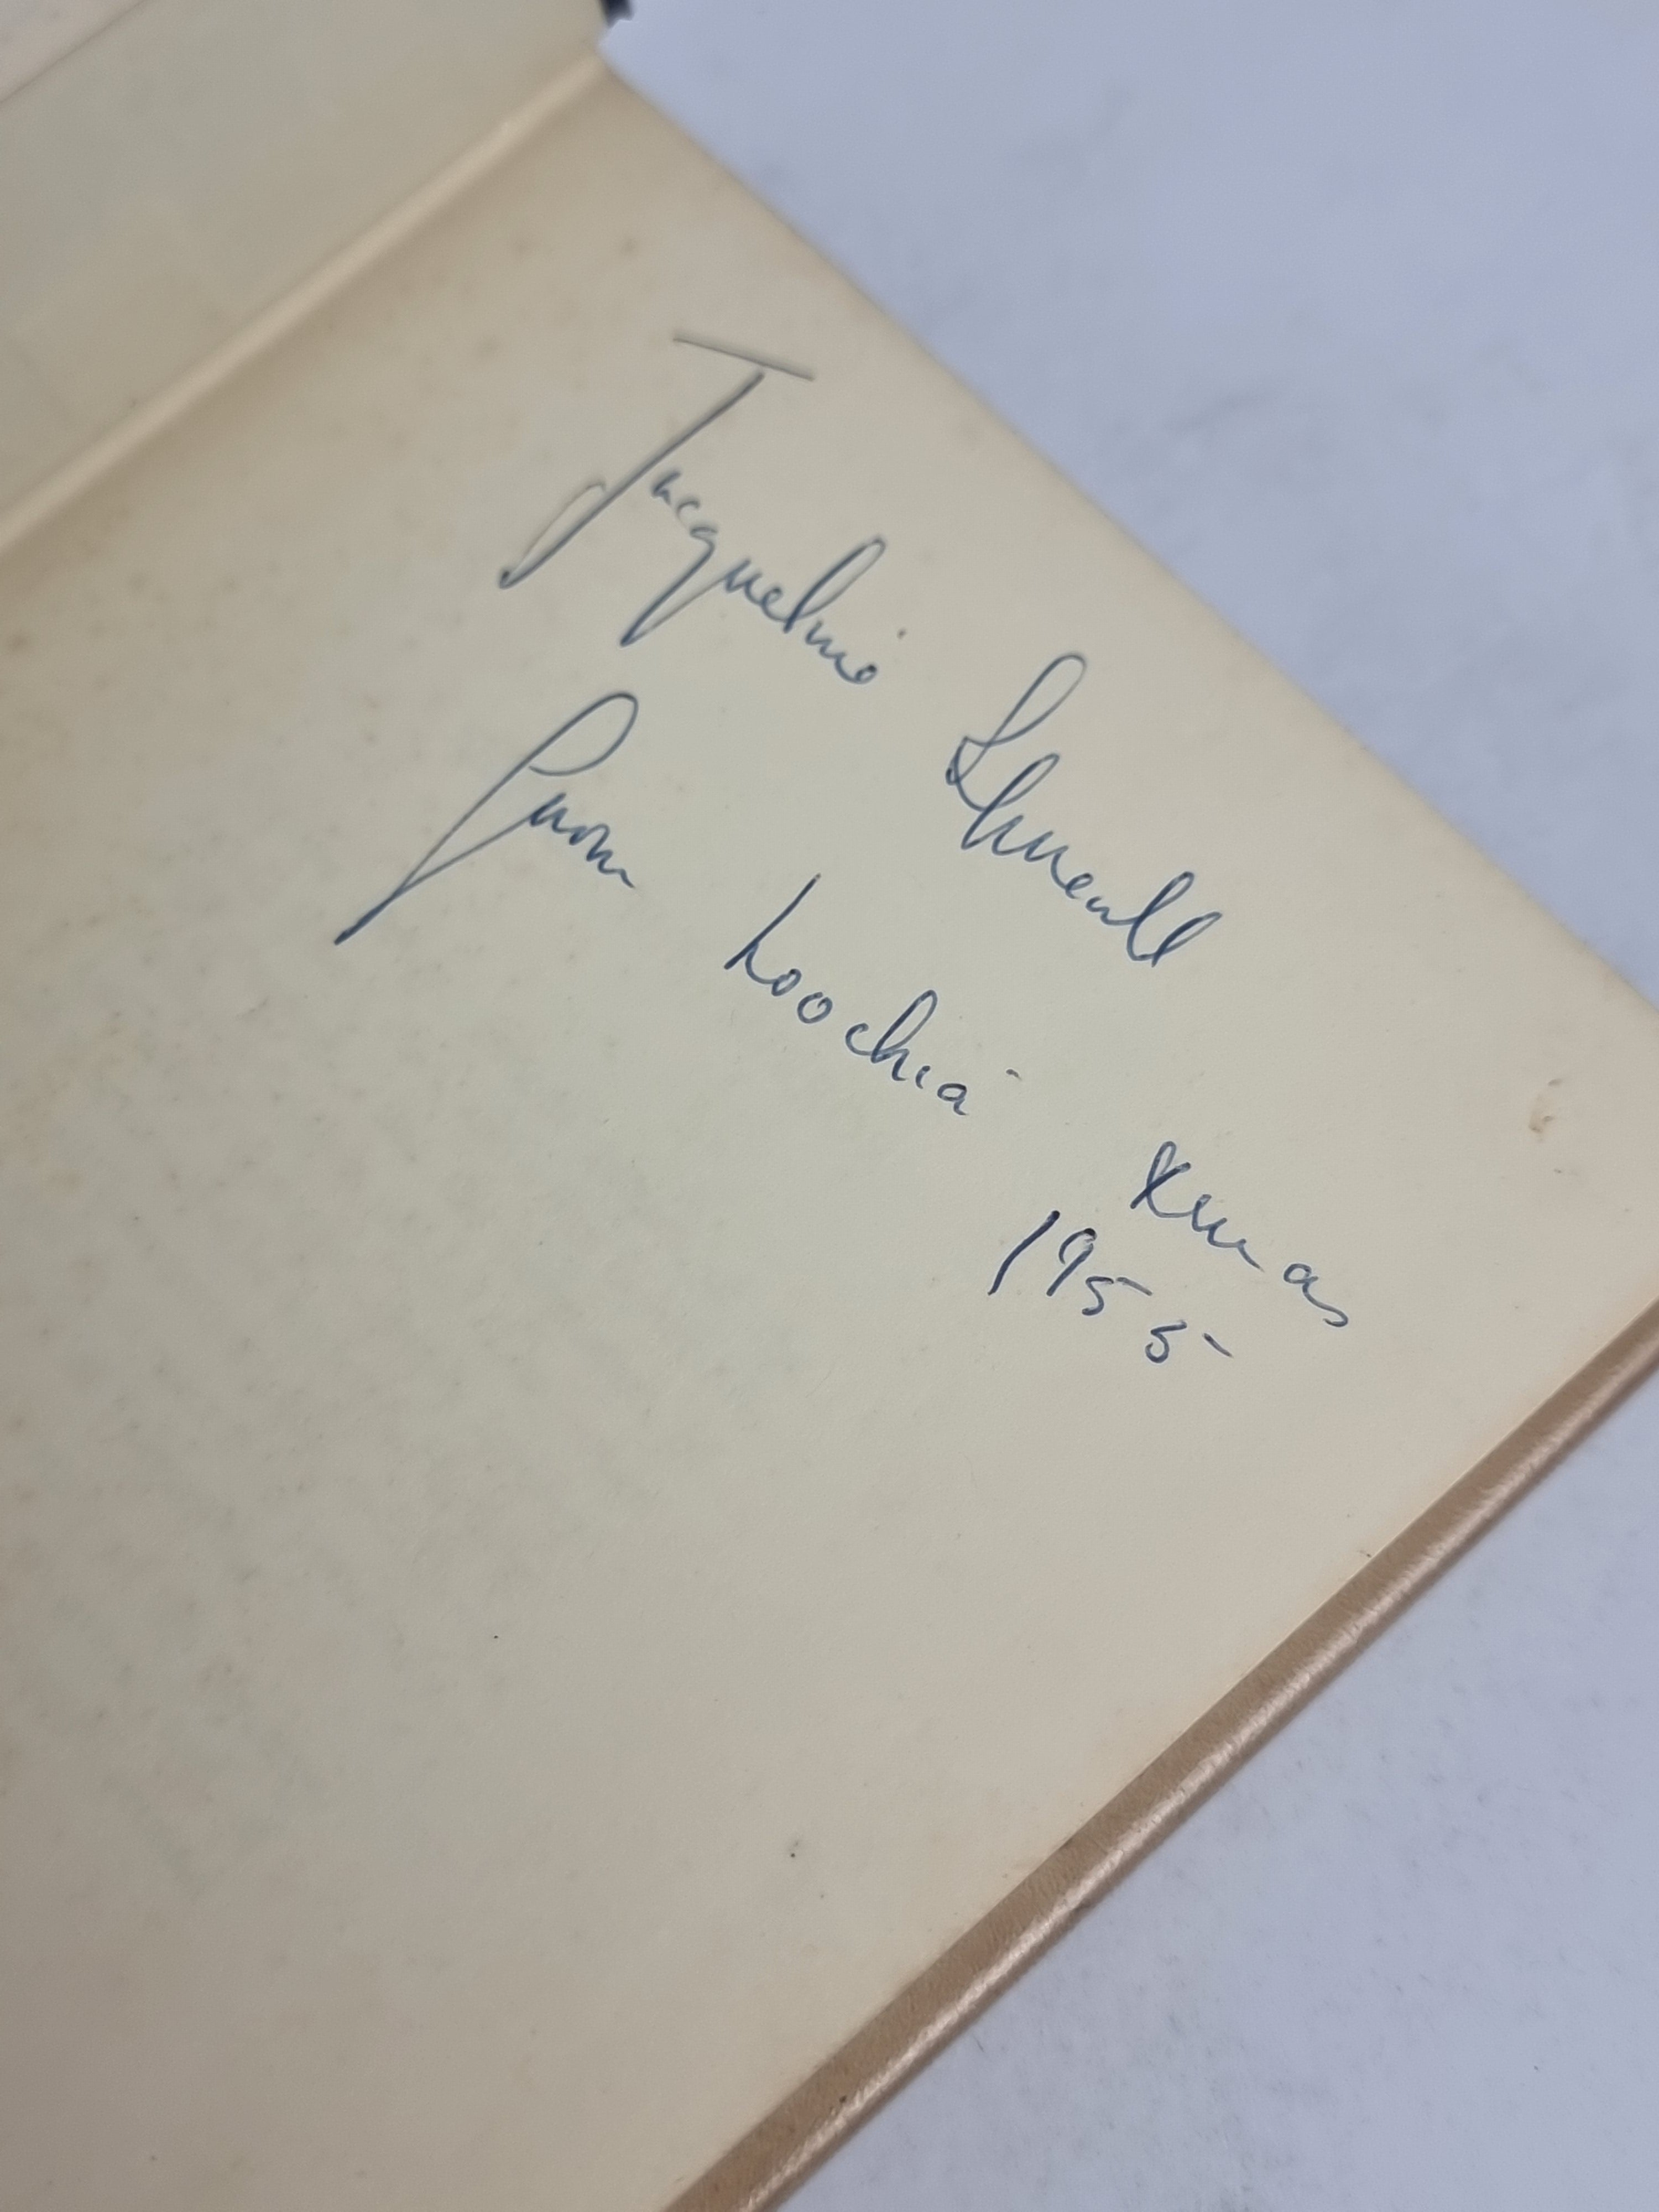 Jacqueline
from Loochia
Xmas
1955